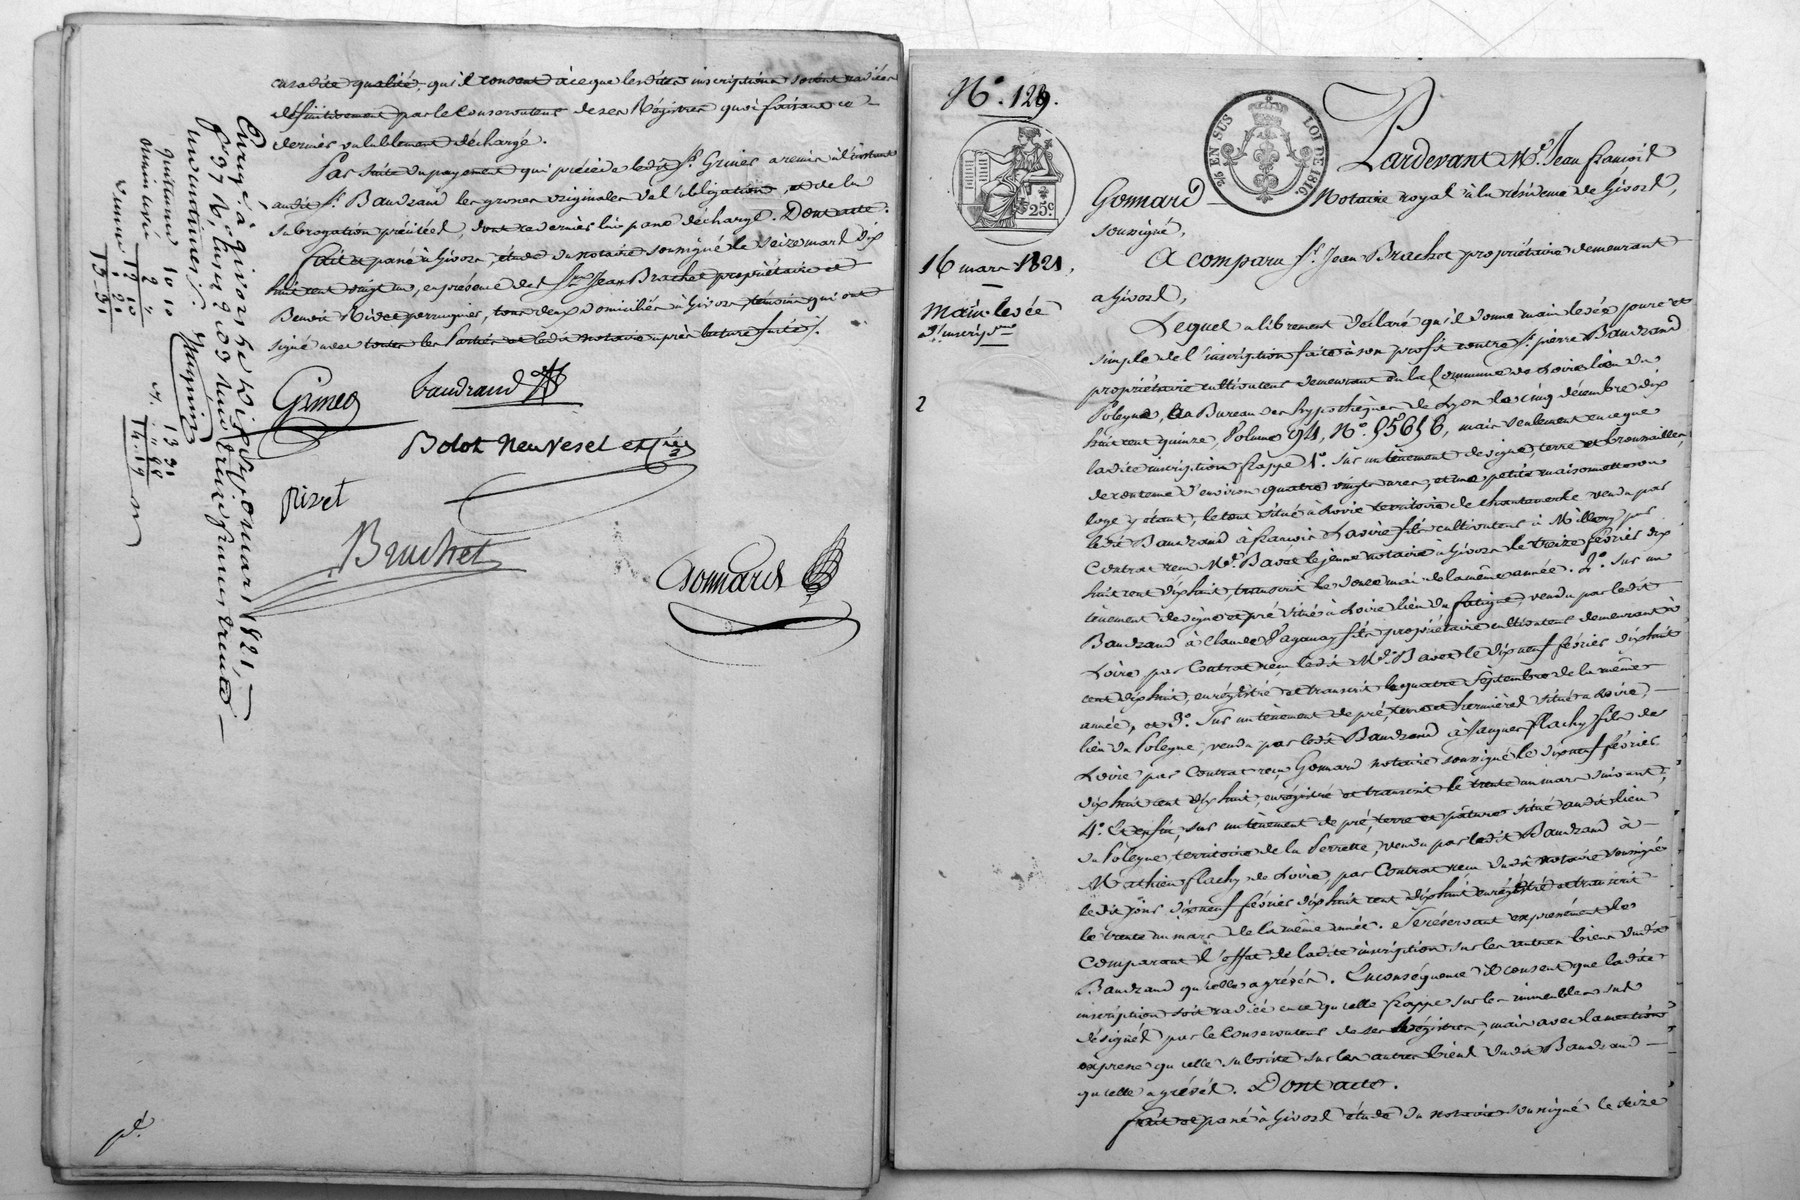 en sadite qualité, qu'il consent à ce que lesdites inscriptions soient radiées
définitivement par le Conservateur de ses Régistres quoi faisant ce
dernier valablement déchargé.
Par suite du payement qui précède ledit Sr. Grimes a remis à l'instant
audit Sr. Baudrand les grosses originales de l'obligation, et de la
subrogation précitées, dont ce dernier lui passe décharge. Dont acte.
fait et passé à Givors, étude du notaire soussigné le seize mars dix
huit cent vingt un, en présence des Srs. Jean Brachet propriétaire et
Benoit Rivet perruquier, tous deux domiciliés à Givors témoins qui ont
signé avec toutes les Parties et ledit notaire après lecture faite./.
baudrand
Bolot Neuvesel et Cie
Rivet
Brachet
Gonnard
Enregé. à Givors le dix sept mars 1821,
quittance 10 10
13 31
14 19
N°. 129.
25c.
26 EN SUS
LOI DE 1816
16 mars 1821,
Main-levée
d'inscripon.
2
Pardevant Me. Jean françois
Gonnard Notaire royal à la résidence de Givors,
soussigné,
A comparu Sr. Jean Brachet propriétaire demeurant
à Givors,
Lequel a librement déclaré qu'il donne main levée pure et
simple de l'inscription faite à son profit contre Sr. pierre Baudrand
propriétaire cultivateur demeurant en la Commune de Loire lieu du
Poleyne, au Bureau des hypothèques de Lyon le cinq décembre dix
huit cent quinze, Volume 94, N°. , mais seulement en ce que
ladite inscription frappe 1°. sur un tènement de vigne, terre et broussailles,
de contenue d'environ quatre vingt ares, et une petite maisonnette ou
loge y étant, le tout situé à Loire territoire de chantemerle vendu par
ledit Baudrand à françois fils cultivateur à Millery par
Contrat reçu Me. Bavet le jeune notaire à Givors le treize février dix
huit cent dix huit, transcrit le douze mai de la même année. 2°. Sur un
tènement de vigne et pré situé à Loire lieu du fatigue, vendu par ledit
Baudrand à Claude fils propriétaire cultivateur demeurant à
Loire par Contrat reçu ledit Me. Bavet le dix neuf février dix huit
cent dix huit, enrégistré et transcrit le quatre Septembre de la même
année, et 3°. Sur un tènement de pré, terre et hermières situé à Loire,
lieu du Poleyne, vendu par ledit Baudrand à Jacques flachy fils de
Loire par Contrat reçu Gonnard notaire soussigné le dix neuf février
dix huit cent dix huit, enrégistré et transcrit le trente un mars suivant,
4°. Et enfin, sur un tènement de pré, terre et pature situé audit lieu
du Poleyne, territoire de la Perrette, vendu par ledit Baudrand à
Mathieu flachy de Loire, par Contrat reçu dudit notaire soussigné
ledit jour dix neuf février dix huit cent dix huit enrégistré et transcrit
le trente un mars de la même année. Se réservant expressément le
Comparant l'effet de ladite inscription sur les autres biens dudit
Baudrand qu'elle a grévés. En conséquence il consent que ladite
inscription soit radiée en ce qu'elle frappe sur les immeubles sus
désignés par le Conservateur de ses Régistres, mais avec la mention
expresse qu'elle subsiste sur les autres biens dudit Baudrand
qu'elle a grévés. Dont acte.
fait et passé à Givors étude du notaire soussigné le seize